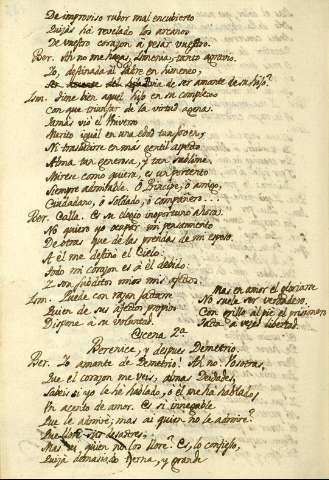 De improviso rubor mal encubierto
Quizás ha revelado los arcanos
De vuestro corazon à pesar vuestro.
Ber. Ah no me hagas, Ismenia, tanto agravio.
Yo, destinada al Padre en himeneo,
de ser amante de su hijo?
Ism. Tiene bien aquel hijo en su complexo
con que triunfar de la virtud agena.
Jamás vió el Universo
Merito igual en una edad tan joven,
Ni traslucirse en más gentil aspecto
Alma tan generosa, y tan sublime.
Mirese como quiera, es un portento
Siempre admirable. O Principe, ò amigo,
Ciudadano, ò soldado, ò compañero...
Ber. Calla. Es su elogio inoportuno ahora.
No quiero yo ocupar mi pensamiento
De otras que de las prendas de mi esposo.
A èl me destinó el Cielo:
Todo mi corazon es à èl debido:
Y son subditos mios mis afectos.
Ism. Puede con razon jactarse
Quien de sus afectos propios
Dispone à su voluntad.
Mas en amor el gloriarse
No suele ser verdadero:
Con grillo al pie el prisionero
Jacta à veces libertad.
Escena 2ª
Berenice, y despues Demetrio.
Ber. Yo amante de Demetrio! Ah no: Vosotras,
Que el corazon me veis, almas Deidades,
Sabeis si yo le he hablado, ò èl me ha hablado
Un acento de amor. Es si innegable
Que le admiré; mas ai quien no le admire?
Que lloré sus desastres;
Mas ai quien no los llore? Es, lo confieso,
Quizá demasiado tierna, y grande